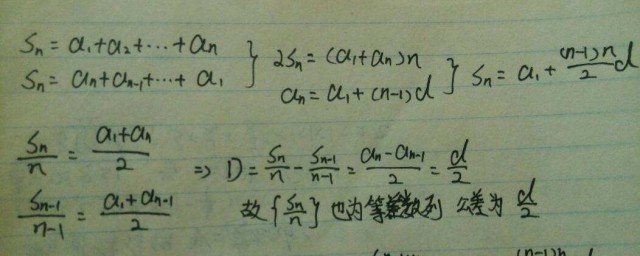 Sn = a₁+a₂+⋯+an
Sn = an+an-1+⋯+a₁ } 2Sn = (a₁+an)n
an = a₁+(n-1)d } Sn = a₁ + (n-1)n/2 d
Sn/n = (a₁+an)/2
Sn-1/n-1 = (a₁+an-1)/2 ⇒ D = Sn/n - Sn-1/n-1 = (an-an-1)/2 = d/2
故{Sn/n}也为等差数列 公差为 d/2
(n-1)n